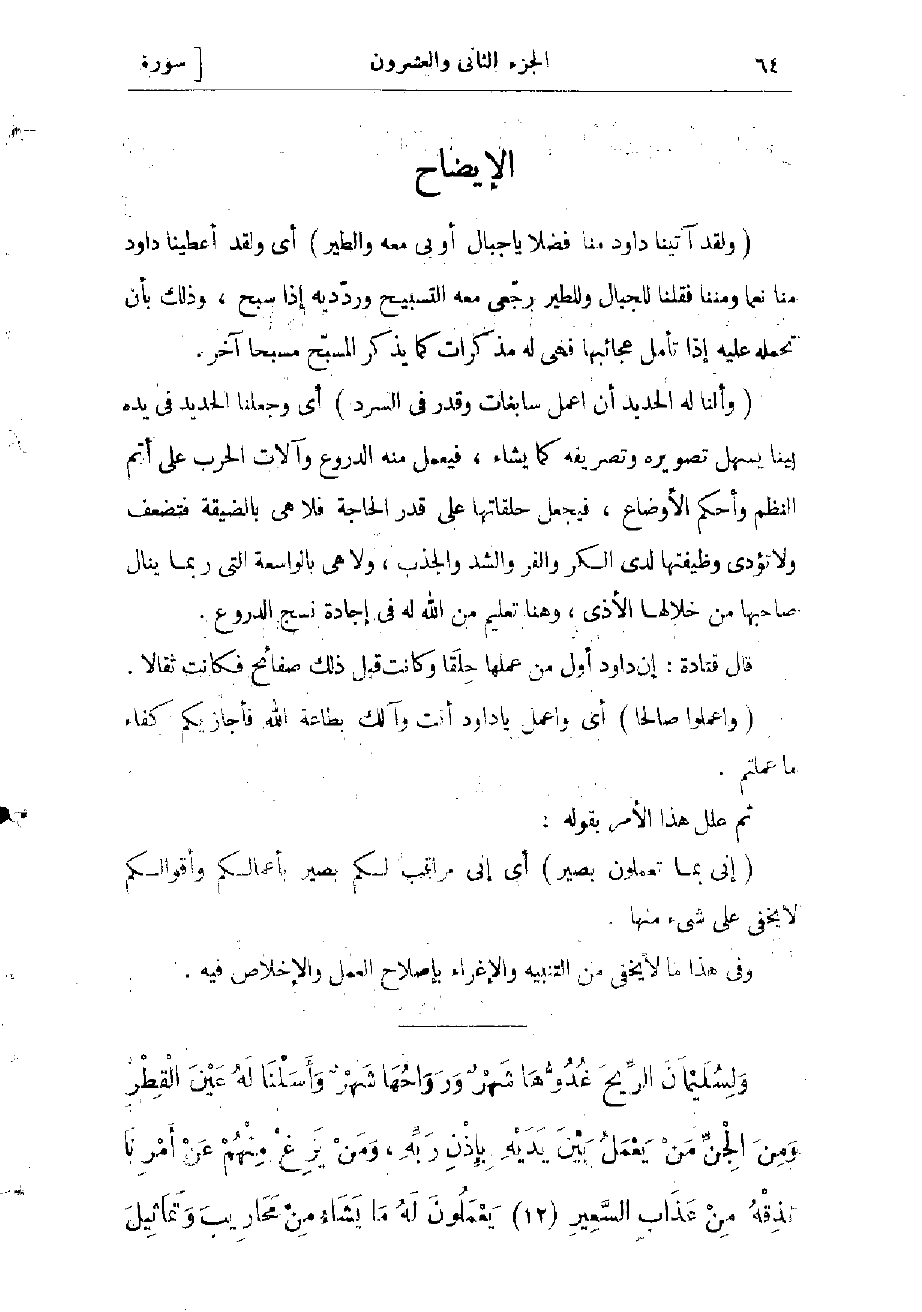 ٦٤ الجزء الثانى والعشرون [ سورة
الإيضاح
( ولقد آتينا داود منا فضلا ياجبال أوبى معه والطير ) أى ولقد أعطينا داود
منا نعما ومننا فقلنا للجبال وللطير رجّعى معه التسبيح وردّديه إذا سبح ، وذلك بأن
تحمله عليه إذا تأمل عجائبها فهى له مذكرات كما يذكر المسبّح مسبحا آخر .
( وألنا له الحديد أن اعمل سابغات وقدر فى السرد ) أى وجعلنا الحديد فى يده
لينا يسهل تصويره وتصريفه كما يشاء ، فيعمل منه الدروع وآلات الحرب على أتم
النظم وأحكم الأوضاع ، فيجعل حلقاتها على قدر الحاجة فلا هى بالضيقة فتضعف
ولا تؤدى وظيفتها لدى الكر والفر والشد والجذب ، ولا هى بالواسعة التى ربما ينال
صاحبها من خلالها الأذى ، وهنا تعليم من الله له فى إجادة نسج الدروع .
قال قتادة : إن داود أول من عملها حِلَقا وكانت قبل ذلك صفائح فكانت ثقالا .
( واعملوا صالحا ) أى واعمل ياداود أنت وآلك بطاعة الله فأجازيكم كفاء
ما عملتم .
ثم علل هذا الأمر بقوله :
( إنى بما تعملون بصير ) أى إنى مراقب لكم بصير بأعمالكم وأقوالكم
لا يخفى على شىء منها .
وفى هذا ما لا يخفى من التنبيه والإغراء بإصلاح العمل والإخلاص فيه .
وَلِسُلَيْمَانَ الرِّيحَ غُدُوُّهَا شَهْرٌ وَرَوَاحُهَا شَهْرٌ وَأَسَلْنَا لَهُ عَيْنَ الْقِطْرِ
وَمِنَ الْجِنِّ مَنْ يَعْمَلُ بَيْنَ يَدَيْهِ بِإِذْنِ رَبِّهِ ، وَمَنْ يَزِغْ مِنْهُمْ عَنْ أَمْرِنَا
نُذِقْهُ مِنْ عَذَابِ السَّعِيرِ (١٢) يَعْمَلُونَ لَهُ مَا يَشَاءُ مِنْ مَحَارِيبَ وَتَمَاثِيلَ